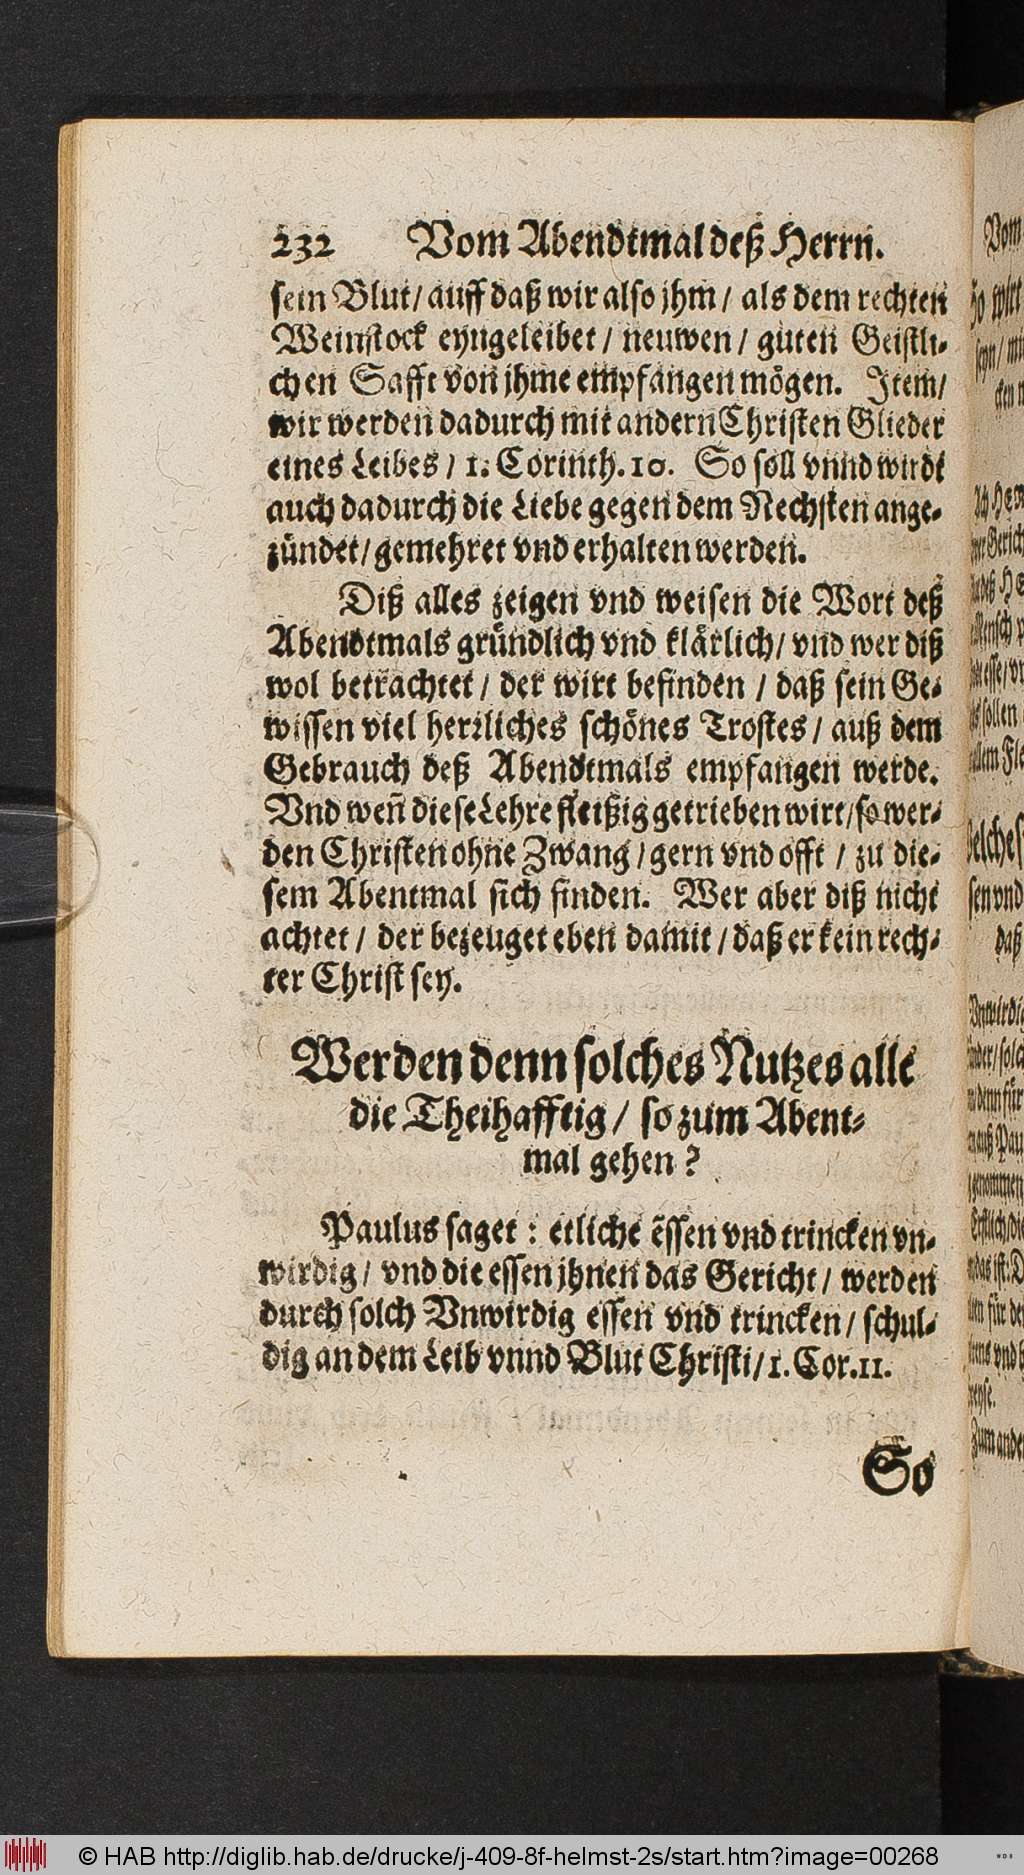 232 Vom Abendtmal deß Herrn.
sein Blut / auff daß wir also jhm / als dem rechten
Weinstock eyngeleibet / neuwen / guten Geistli-
chen Safft von jhme empfangen mögen. Item /
wir werden dadurch mit andern Christen Glieder
eines Leibes / 1. Corinth. 10. So soll vnnd wirdt
auch dadurch die Liebe gegen dem Nechsten ange-
zündet / gemehret vnd erhalten werden.
Diß alles zeigen vnd weisen die Wort deß
Abendtmals gründlich vnd klärlich / vnd wer diß
wol betrachtet / der wirt befinden / daß sein Ge-
wissen viel herzliches schönes Trostes / auß dem
Gebrauch deß Abendtmals empfangen werde.
Vnd weñ diese Lehre fleißig getrieben wirt / so wer-
den Christen ohne Zwang / gern vnd offt / zu die-
sem Abentmal sich finden. Wer aber diß nicht
achtet / der bezeuget eben damit / daß er kein rech-
ter Christ sey.
Werden denn solches Nutzes alle
die Theihafftig / so zum Abent-
mal gehen?
Paulus saget : etliche essen vnd trincken vn-
wirdig / vnd die essen jhnen das Gericht / werden
durch solch Vnwirdig essen vnd trincken / schul-
dig an dem Leib vnnd Blut Christi / 1. Cor. 11.
So
© HAB http://diglib.hab.de/drucke/j-409-8f-helmst-2s/start.htm?image=00268